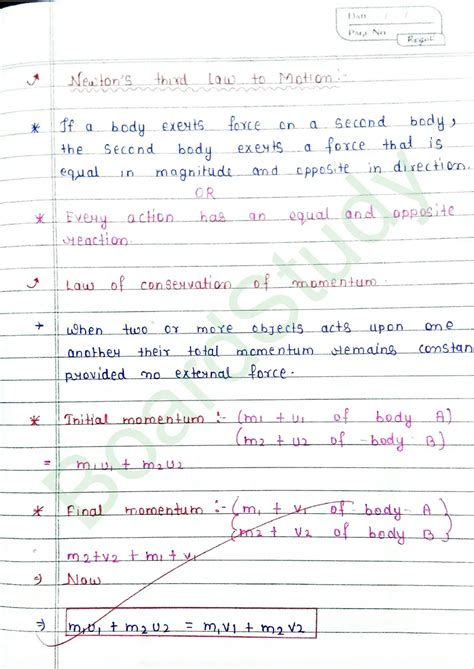 Date / /
Page No.
Newton's third law to Motion:-
* If a body exerts force on a second body,
the second body exerts a force that is
equal in magnitude and opposite in direction.
OR
* Every action has an equal and opposite
reaction.
Law of conservation of momentum
+ when two or more objects acts upon one
another their total momentum remains constan
provided no external force.
* Initial momentum :- (m1 + u1 of body A)
(m2 + u2 of body B)
= m1u1 + m2u2
* Final momentum :- {m1 + v1 of body A}
{m2 + v2 of body B}
m2+v2 + m1 + v1
=) Now
=) m1u1 + m2u2 = m1v1 + m2v2
BoardStudy